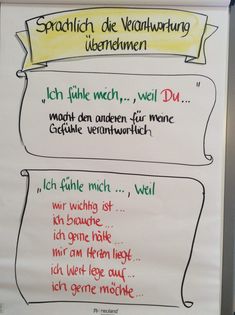 Sprachlich die Verantwortung
übernehmen
„Ich fühle mich,.., weil Du... “
macht den anderen für meine
Gefühle verantwortlich
„Ich fühle mich ..., weil
mir wichtig ist...
ich brauche...
ich gerne hätte...
mir am Herzen liegt...
ich Wert lege auf...
ich gerne möchte...
neuland